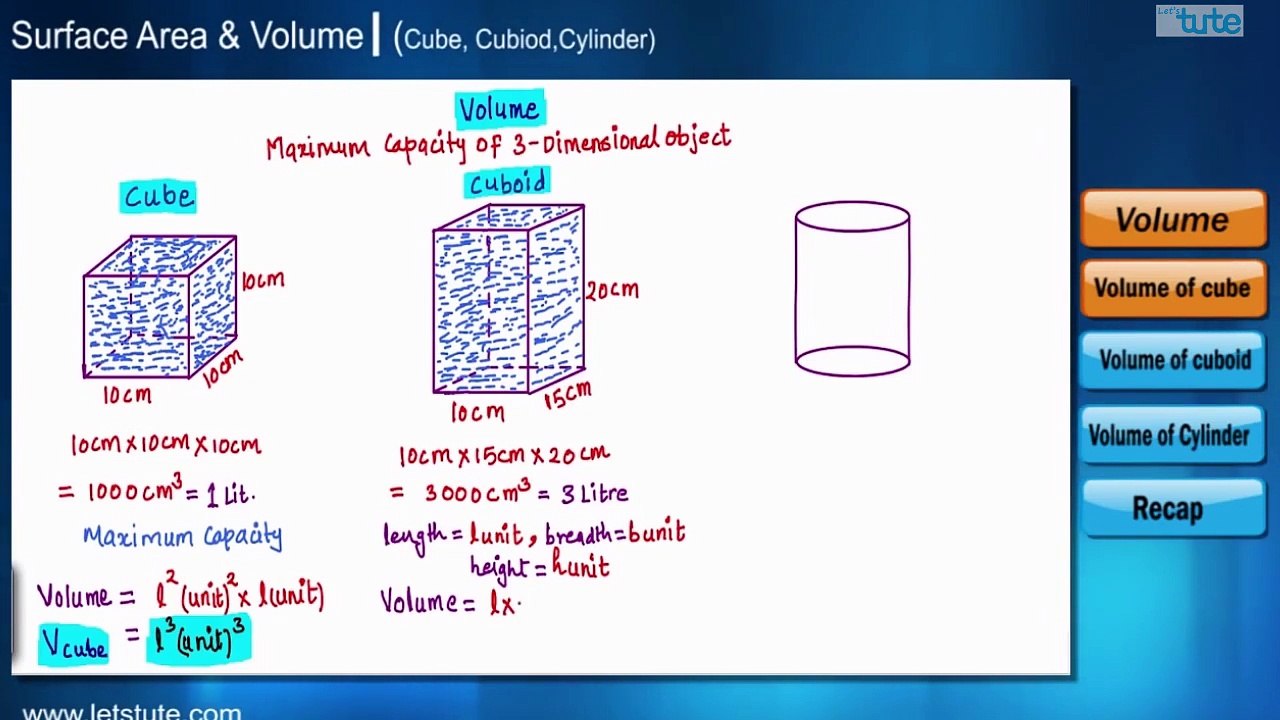 Surface Area & Volume | (Cube, Cubiod,Cylinder)
Let's tute
Volume
Maximum Capacity of 3-Dimensional object
Cube
10cm
10cm
10cm
10cm x 10cm x 10cm
= 1000cm³ = 1 Lit.
Maximum Capacity
Volume = l² (unit)² x l(unit)
Vcube = l³ (unit)³
Cuboid
20cm
15cm
10cm
10cm x 15cm x 20cm
= 3000cm³ = 3 Litre
length = l unit, breadth = b unit
height = h unit
Volume = l x
Volume
Volume of cube
Volume of cuboid
Volume of Cylinder
Recap
www.letstute.com